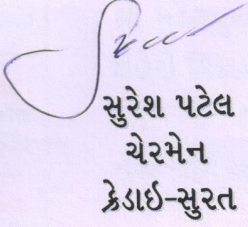 સુરેશ પટેલ
ચેરમેન
ક્રેડાઇ-સુરત